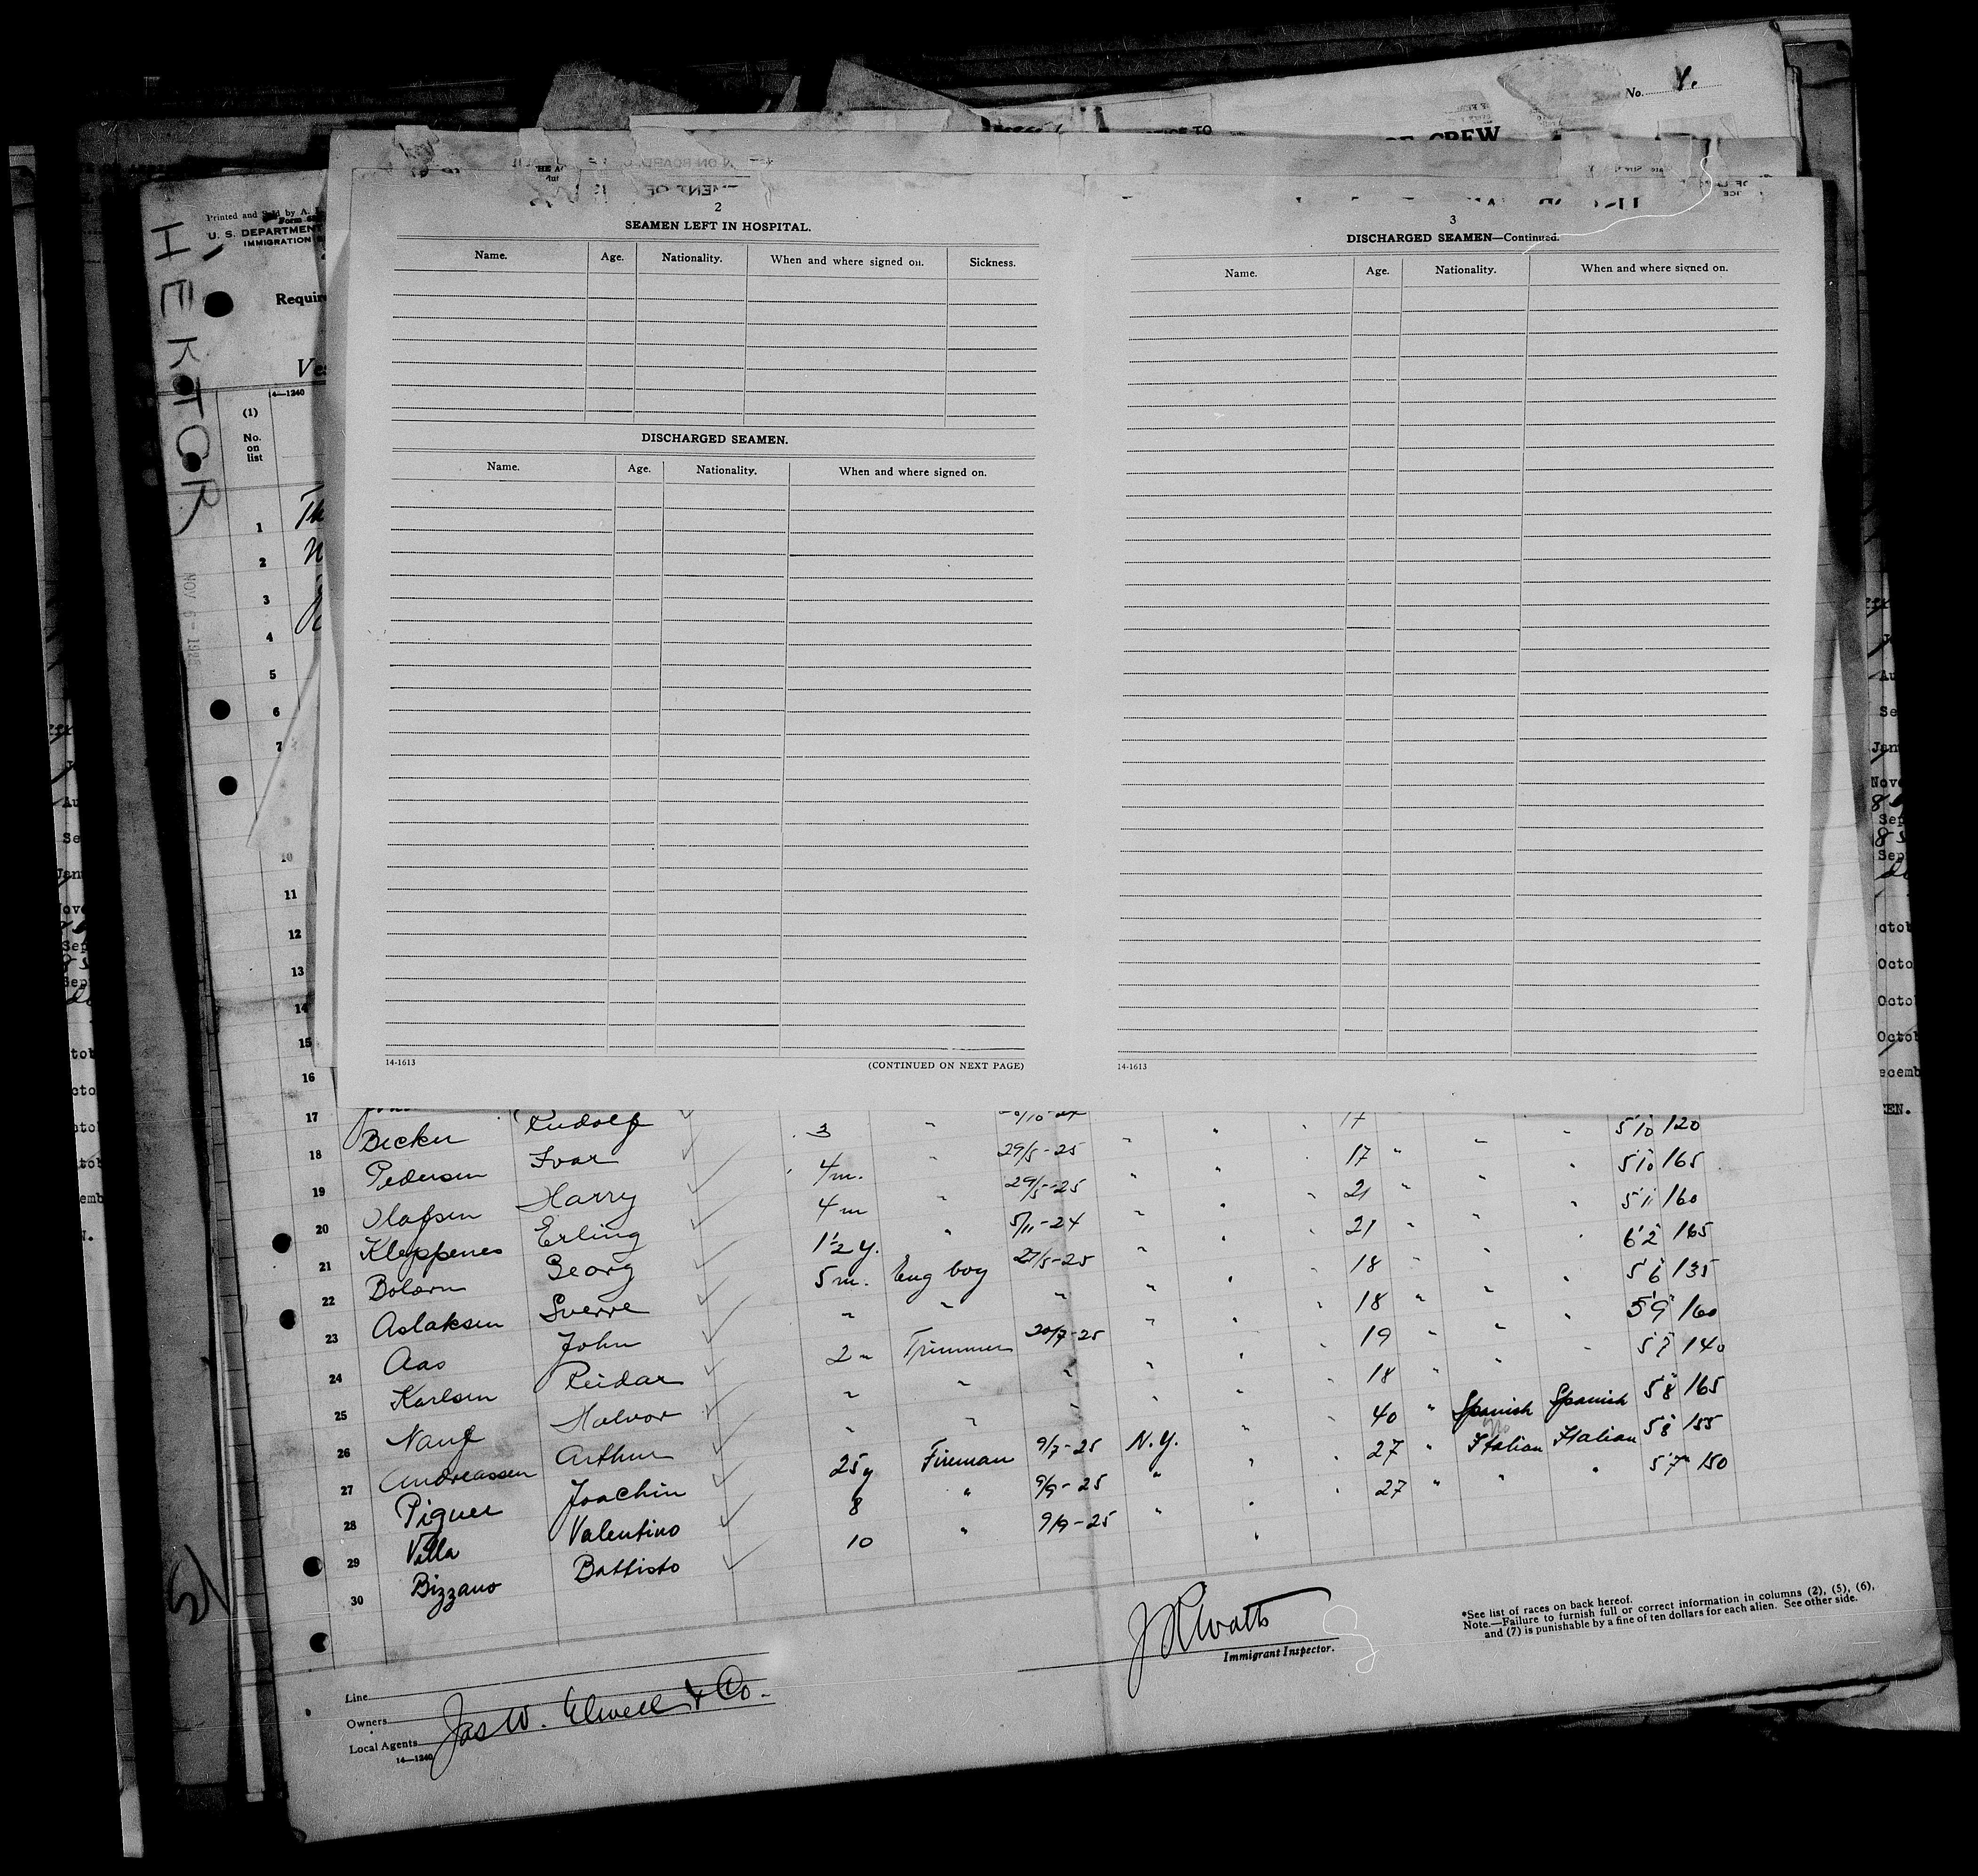 No. 4.
OF CREW
HEKTOR
Printed and Sold by A.
U. S. DEPARTMENT
IMMIGRATION
Requir
Ves
14—1240
(1)
No.
on
list
NOV 6 - 192
2
SEAMEN LEFT IN HOSPITAL.
Name. Age. Nationality. When and where signed on. Sickness.
DISCHARGED SEAMEN.
Name. Age. Nationality. When and where signed on.
14-1613 (CONTINUED ON NEXT PAGE)
3
DISCHARGED SEAMEN—Continued.
Name. Age. Nationality. When and where signed on.
14-1613
1
2
3
4
5
6
7
10
11
12
13
14
15
16
17
18 Becker Rudolf 3 " 17 " 5'10 120
19 Pedersen Ivar 4 m. " 29/5-25 " " " 17 " " " 5'10 165
20 Olafsen Harry 4 m " 29/5-25 " " " 21 " " " 5'11 160
21 Kleppenes Erling 1½ y. " 5/11-24 " " " 21 " " " 6'2 165
22 Bolærn Georg 5 m. Eng boy 27/5-25 " " " 18 " " " 5'6 135
23 Aslaksen Sverre " " " " " " 18 " " " 5'9 160
24 Aas John 2 " Trimmer 20/7-25 " " " 19 " " " 5'7 140
25 Karlsen Reidar " " " " " " 18 " " " 5'8 165
26 Nauf Halvor " " " " "
27 Andreassen Arthur
28 Piquer Joachin 25 y Fireman 9/7-25 N.Y. " " 40 " Spanish Spanish 5'8 155
29 Villa Valentino 8 " 9/9-25 " " " 27 " Italian Italian 5'7 150
30 Bizzano Battisto 10 " 9/9-25 " " 27 " " "
Line
Owners
Local Agents Jas W. Elwell & Co.
14—1240
Immigrant Inspector.
*See list of races on back hereof.
Note.—Failure to furnish full or correct information in columns (2), (5), (6),
and (7) is punishable by a fine of ten dollars for each alien. See other side.